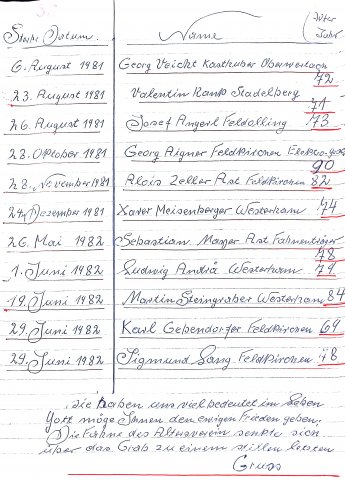 Sterbe Datum. Name (Alter Jahr
6. August 1981 Georg Veichl Kasthuber Oberwertach 72
23. August 1981 Valentin Rank Stadelberg 71
26. August 1981 Josef Angerl Feldolling 73
23. Oktober 1981 Georg Aigner Feldkirchen 90
28. November 1981 Alois Zeller Ast Feldkirchen 82
24. Dezember 1981 Xaver Meisenberger Westerham 74
26. Mai 1982 Sebastian Mayer Ast Fahnenträger 78
1. Juni 1982 Ludwig Andrä Westerham 79
19. Juni 1982 Martin Steingraber Westerham 84
29. Juni 1982 Karl Gebendorfer Feldkirchen 69
29. Juni 1982 Sigmund Sang Feldkirchen 78
Sie haben uns viel bedeutet im Leben
Gott möge Ihnen den ewigen Frieden geben.
Die Fahne des Altersverein senkte sich
über das Grab zu einem stillen letzten
Gruss